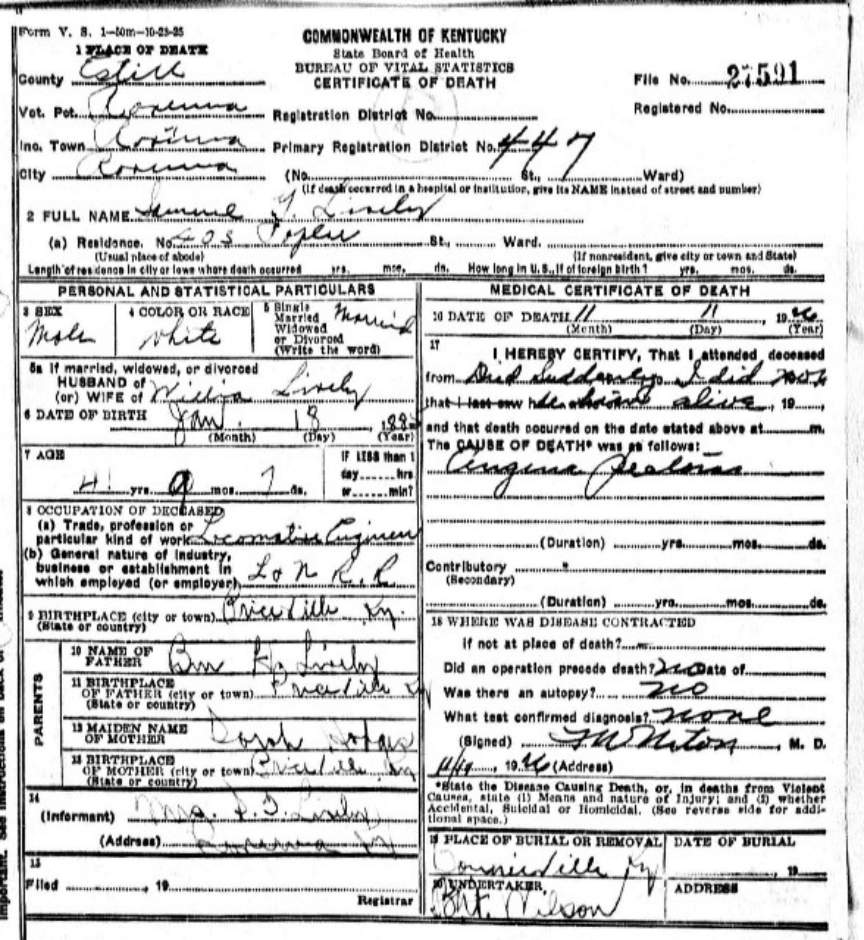 Form V. S. 1—50m—10-23-25
COMMONWEALTH OF KENTUCKY
State Board of Health
BUREAU OF VITAL STATISTICS
CERTIFICATE OF DEATH
1 PLACE OF DEATH
County Estill
File No. 27591
Vot. Pct.
Registration District No.
Registered No.
Inc. Town
Primary Registration District No. 447
City
(No. St., Ward)
(If death occurred in a hospital or institution, give its NAME instead of street and number)
2 FULL NAME Samuel T. Lively
(a) Residence. No. 403 St., Ward.
(Usual place of abode) (If nonresident, give city or town and State)
Length of residence in city or town where death occurred yrs. mos. ds. How long in U.S., if of foreign birth? yrs. mos. ds.
PERSONAL AND STATISTICAL PARTICULARS
3 SEX Male
4 COLOR OR RACE White
5 Single Married Widowed or Divorced (Write the word) Married
5a If married, widowed, or divorced
HUSBAND of
(or) WIFE of Lively
6 DATE OF BIRTH Jan. 18 188
(Month) (Day) (Year)
7 AGE IF LESS than 1
41 yrs. 9 mos. 7 ds. day hrs or min?
8 OCCUPATION OF DECEASED
(a) Trade, profession or particular kind of work Locomotive Engineer
(b) General nature of industry, business or establishment in which employed (or employer) L & N R. R
9 BIRTHPLACE (city or town) Priceville Ky.
(State or country)
PARENTS
10 NAME OF FATHER Lively
11 BIRTHPLACE OF FATHER (city or town) Priceville Ky
(State or country)
12 MAIDEN NAME OF MOTHER Sarah
13 BIRTHPLACE OF MOTHER (city or town) Priceville Ky
(State or country)
14
(Informant) Mrs. S. T. Lively
(Address) Ky
15
Filed , 19
Registrar
MEDICAL CERTIFICATE OF DEATH
16 DATE OF DEATH 11 11 1926
(Month) (Day) (Year)
17
I HEREBY CERTIFY, That I attended, deceased
from Died Suddenly I did not
that I last saw h alive , 19
and that death occurred on the date stated above at m.
The CAUSE OF DEATH* was as follows:
Angina
(Duration) yrs. mos. ds.
Contributory
(Secondary)
(Duration) yrs. mos. ds.
18 WHERE WAS DISEASE CONTRACTED
if not at place of death?
Did an operation precede death? no Date of
Was there an autopsy? no
What test confirmed diagnosis? none
(Signed) , M. D.
, 1926 (Address)
*State the Disease Causing Death, or, in deaths from Violent
Causes, state (1) Means and nature of Injury; and (2) whether
Accidental, Suicidal or Homicidal. (See reverse side for addi-
tional space.)
19 PLACE OF BURIAL OR REMOVAL DATE OF BURIAL
Ky , 19
20 UNDERTAKER ADDRESS
Wilson